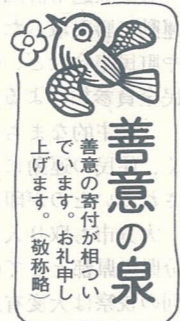 善意の泉
善意の寄付が相つい
でいます。お礼申し
上げます。（敬称略）